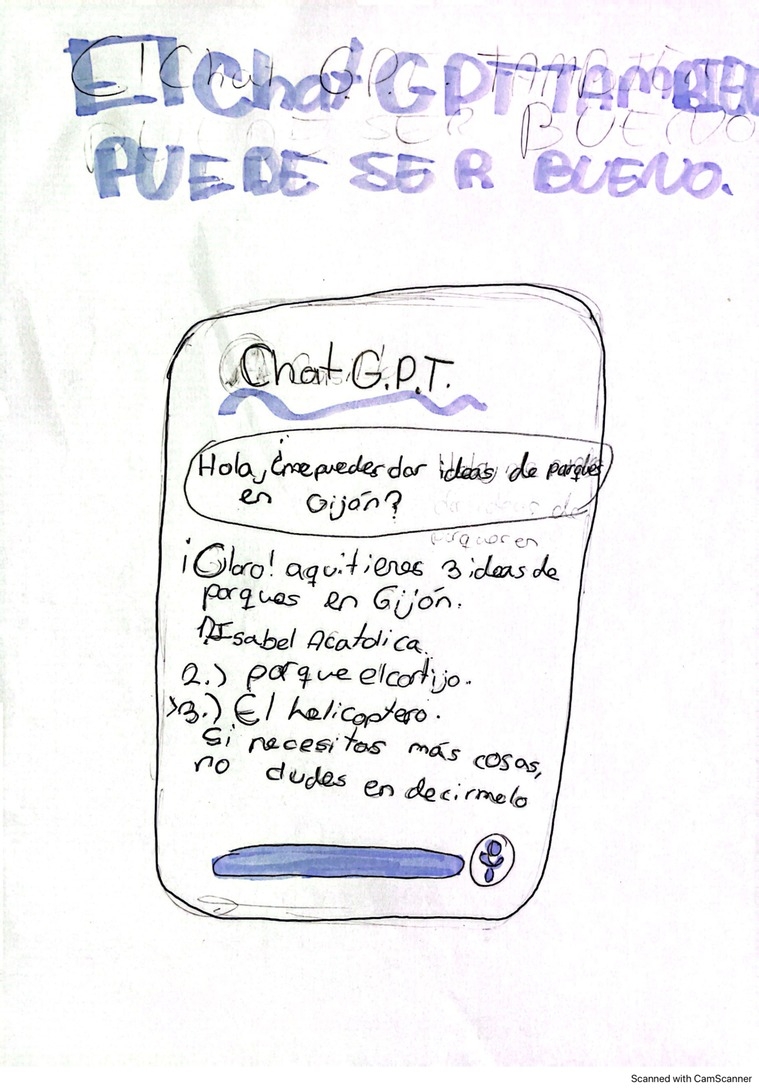 El Chat GPT TAMBIEN
PUEDE SER BUENO.
Chat G.P.T.
Hola, ¿me puedes dar ideas de parques
en Gijón?
¡Claro! aqui tienes 3 ideas de
parques en Gijón.
1.) Isabel Acatolica.
2.) parque el cortijo.
3.) El helicoptero.
si necesitas más cosas,
no dudes en decirmelo
Scanned with CamScanner